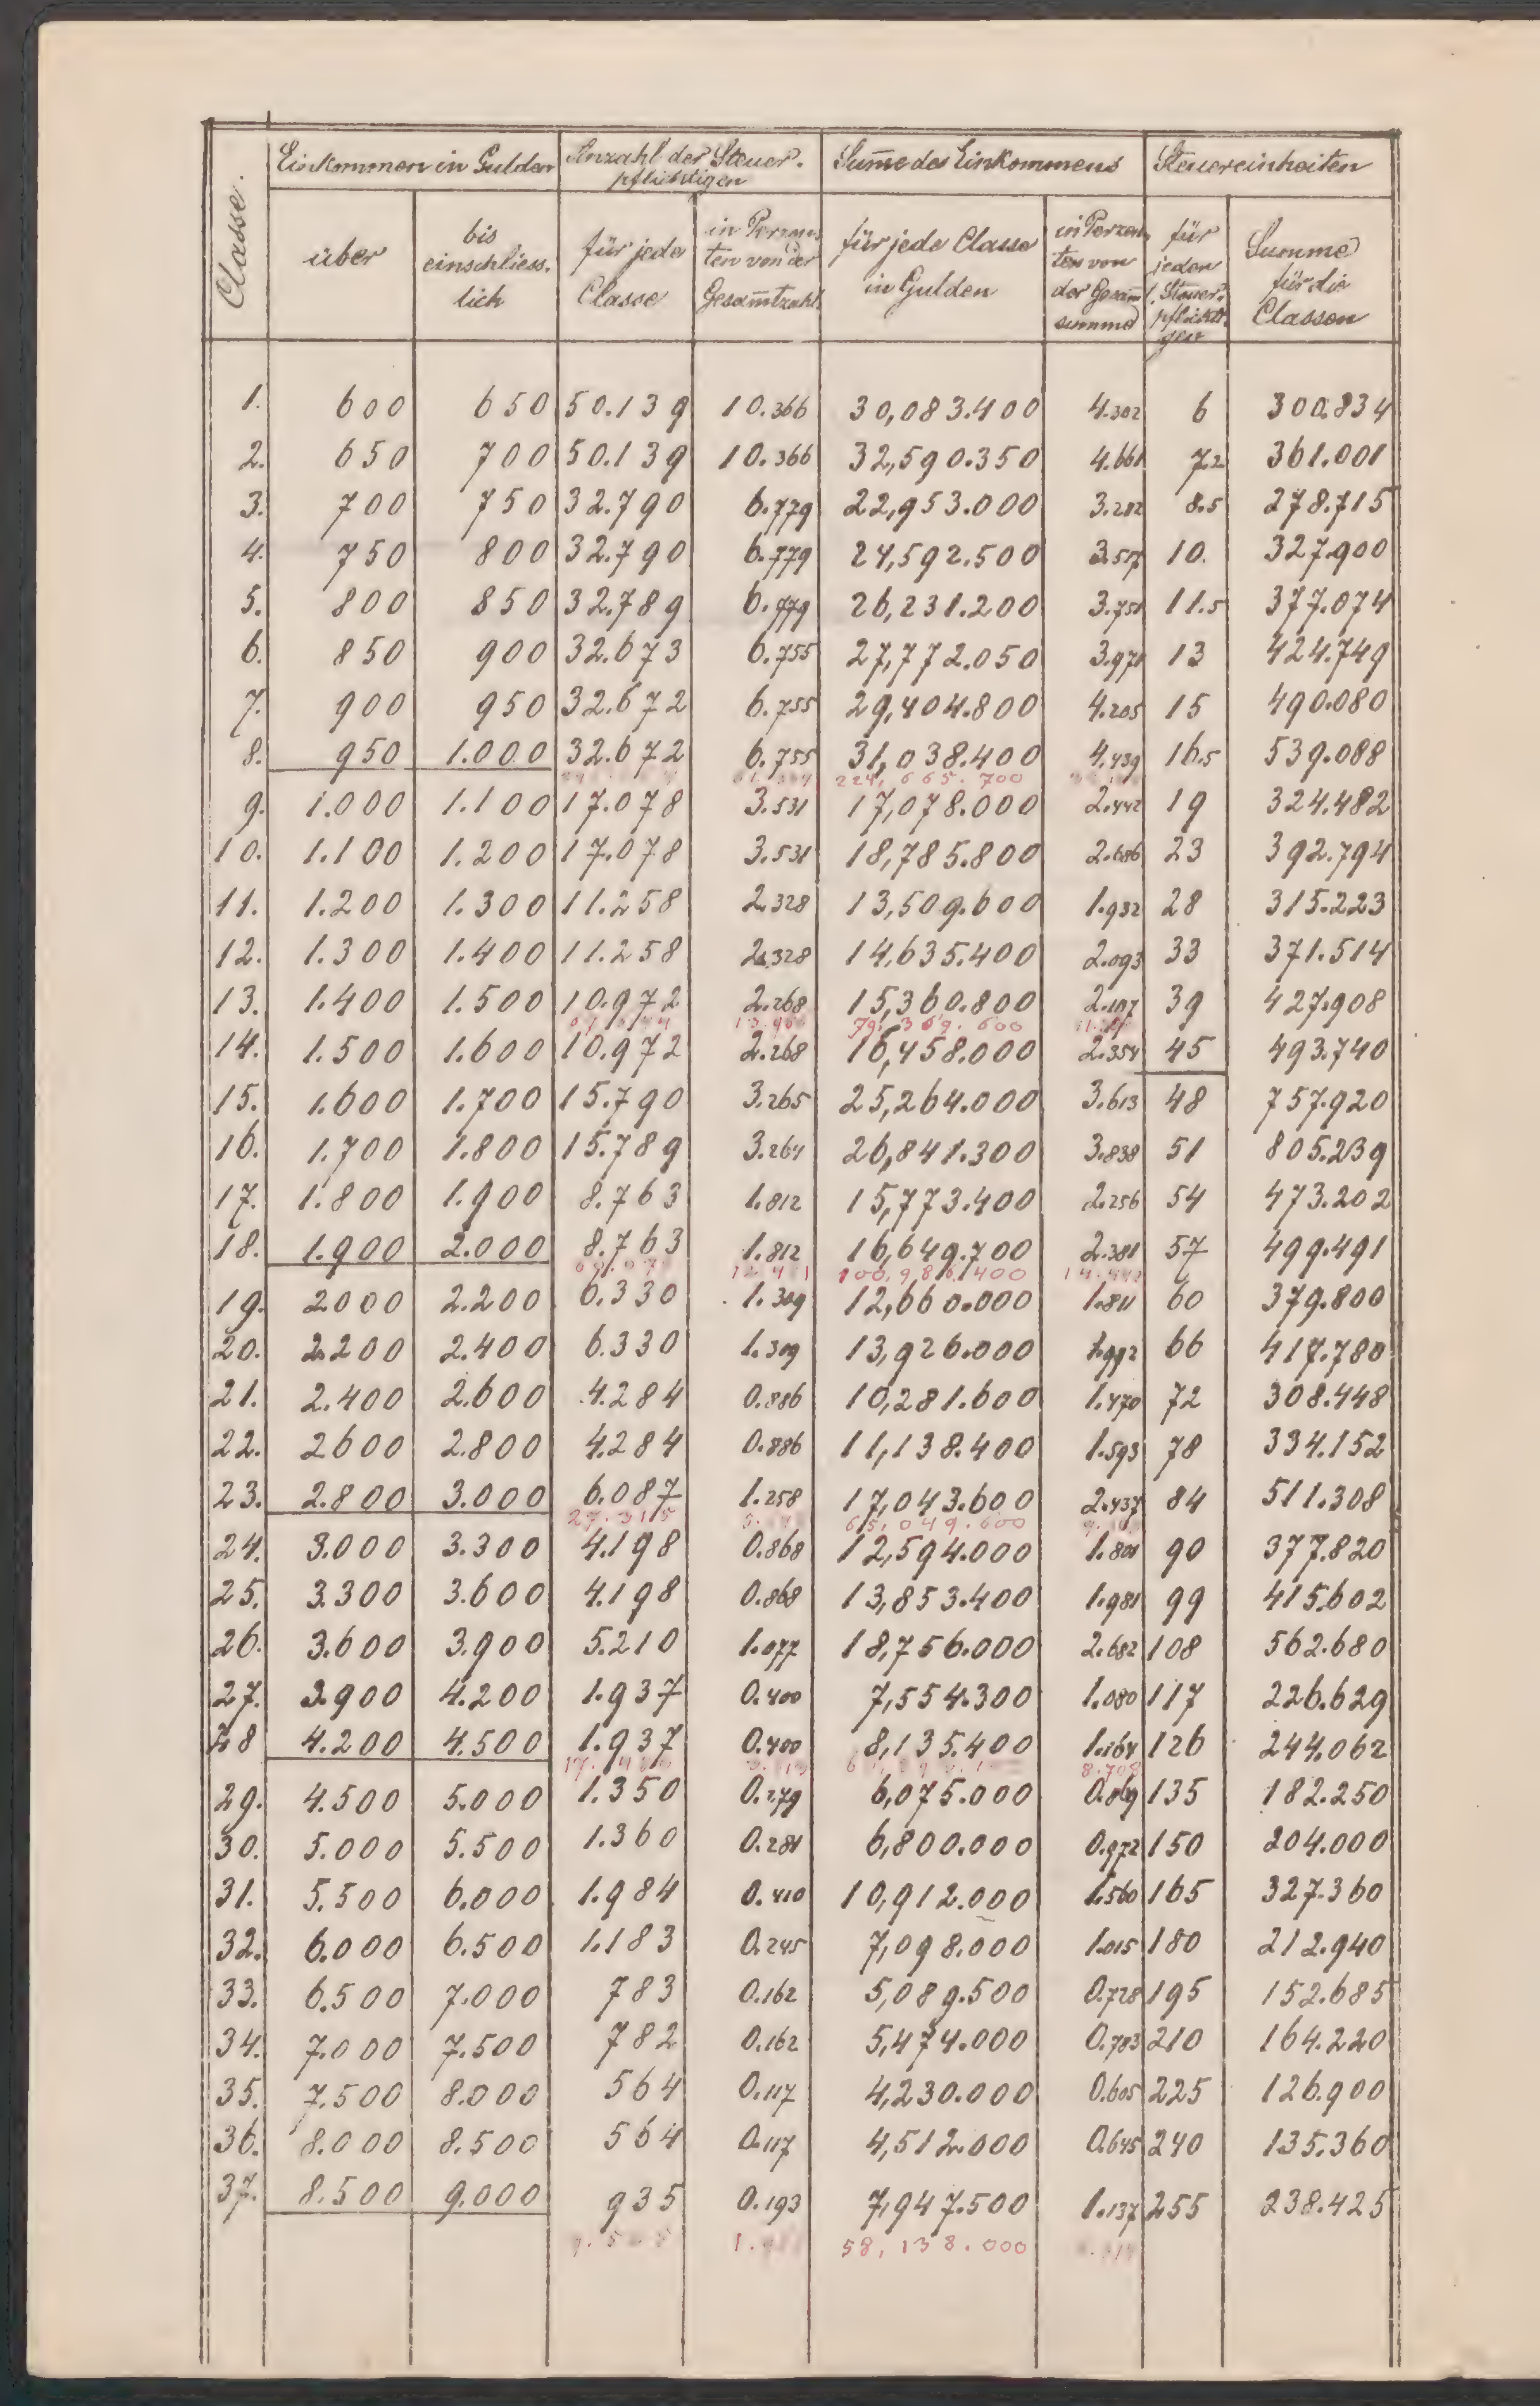 Classe.
Einkommen in Gulden Anzahl der Steuer- Summe des Einkommens Steuereinheiten
pflichtigen
über bis einschliess. lich für jede Classe in Perzen- ten von der Gesamtzahl für jede Classe in Gulden in Perzen ten von der Gesam summe für jeden Steuer- pflichti- gen Summe für die Classen
1. 600 650 50.139 10.366 30,083.400 4.302 6 300.834
2. 650 700 50.139 10.366 32,590.350 4.661 7.2 361.001
3. 700 750 32.790 6.779 22,953.000 3.282 8.5 278.715
4. 750 800 32.790 6.779 24,592.500 3.517 10. 327.900
5. 800 850 32.789 6.779 26,231.200 3.751 11.5 377.074
6. 850 900 32.673 6.755 27,772.050 3.971 13 424.749
7. 900 950 32.672 6.755 29,404.800 4.205 15 490.080
8. 950 1.000 32.672 6.755 31,038.400 4.439 16.5 539.088
224,665.700
9. 1.000 1.100 17.078 3.531 17,078.000 2.442 19 324.482
10. 1.100 1.200 17.078 3.531 18,785.800 2.686 23 392.794
11. 1.200 1.300 11.258 2.328 13,509.600 1.932 28 315.223
12. 1.300 1.400 11.258 2.328 14,635.400 2.093 33 371.514
13. 1.400 1.500 10.972 2.268 15,360.800 2.197 39 427.908
79,369.600
14. 1.500 1.600 10.972 2.268 16,458.000 2.354 45 493.740
15. 1.600 1.700 15.790 3.265 25,264.000 3.613 48 757.920
16. 1.700 1.800 15.789 3.264 26,841.300 3.838 51 805.239
17. 1.800 1.900 8.763 1.812 15,773.400 2.256 54 473.202
18. 1.900 2.000 8.763 1.812 16,649.700 2.381 57 499.491
100,986.400
19. 2000 2.200 6.330 1.309 12,660.000 1.811 60 379.800
20. 2.200 2.400 6.330 1.309 13,926.000 1.992 66 417.780
21. 2.400 2.600 4.284 0.886 10,281.600 1.470 72 308.448
22. 2600 2.800 4.284 0.886 11,138.400 1.593 78 334.152
23. 2.800 3.000 6.087 1.258 17,043.600 2.437 84 511.308
27.315 65,049.600
24. 3.000 3.300 4.198 0.868 12,594.000 1.801 90 377.820
25. 3.300 3.600 4.198 0.868 13,853.400 1.981 99 415.602
26. 3.600 3.900 5.210 1.077 18,756.000 2.682 108 562.680
27. 3.900 4.200 1.937 0.400 7,554.300 1.080 117 226.629
28 4.200 4.500 1.937 0.400 8,135.400 1.164 126 244.062
8.708
29. 4.500 5.000 1.350 0.279 6,075.000 0.869 135 182.250
30. 5.000 5.500 1.360 0.281 6,800.000 0.972 150 204.000
31. 5.500 6.000 1.984 0.410 10,912.000 1.560 165 327.360
32. 6.000 6.500 1.183 0.245 7,098.000 1.015 180 212.940
33. 6.500 7.000 783 0.162 5,089.500 0.728 195 152.685
34. 7.000 7.500 782 0.162 5,474.000 0.783 210 164.220
35. 7.500 8.000 564 0.117 4,230.000 0.605 225 126.900
36. 8.000 8.500 564 0.117 4,512.000 0.645 240 135.360
37. 8.500 9.000 935 0.193 7,947.500 1.137 255 238.425
58,138.000